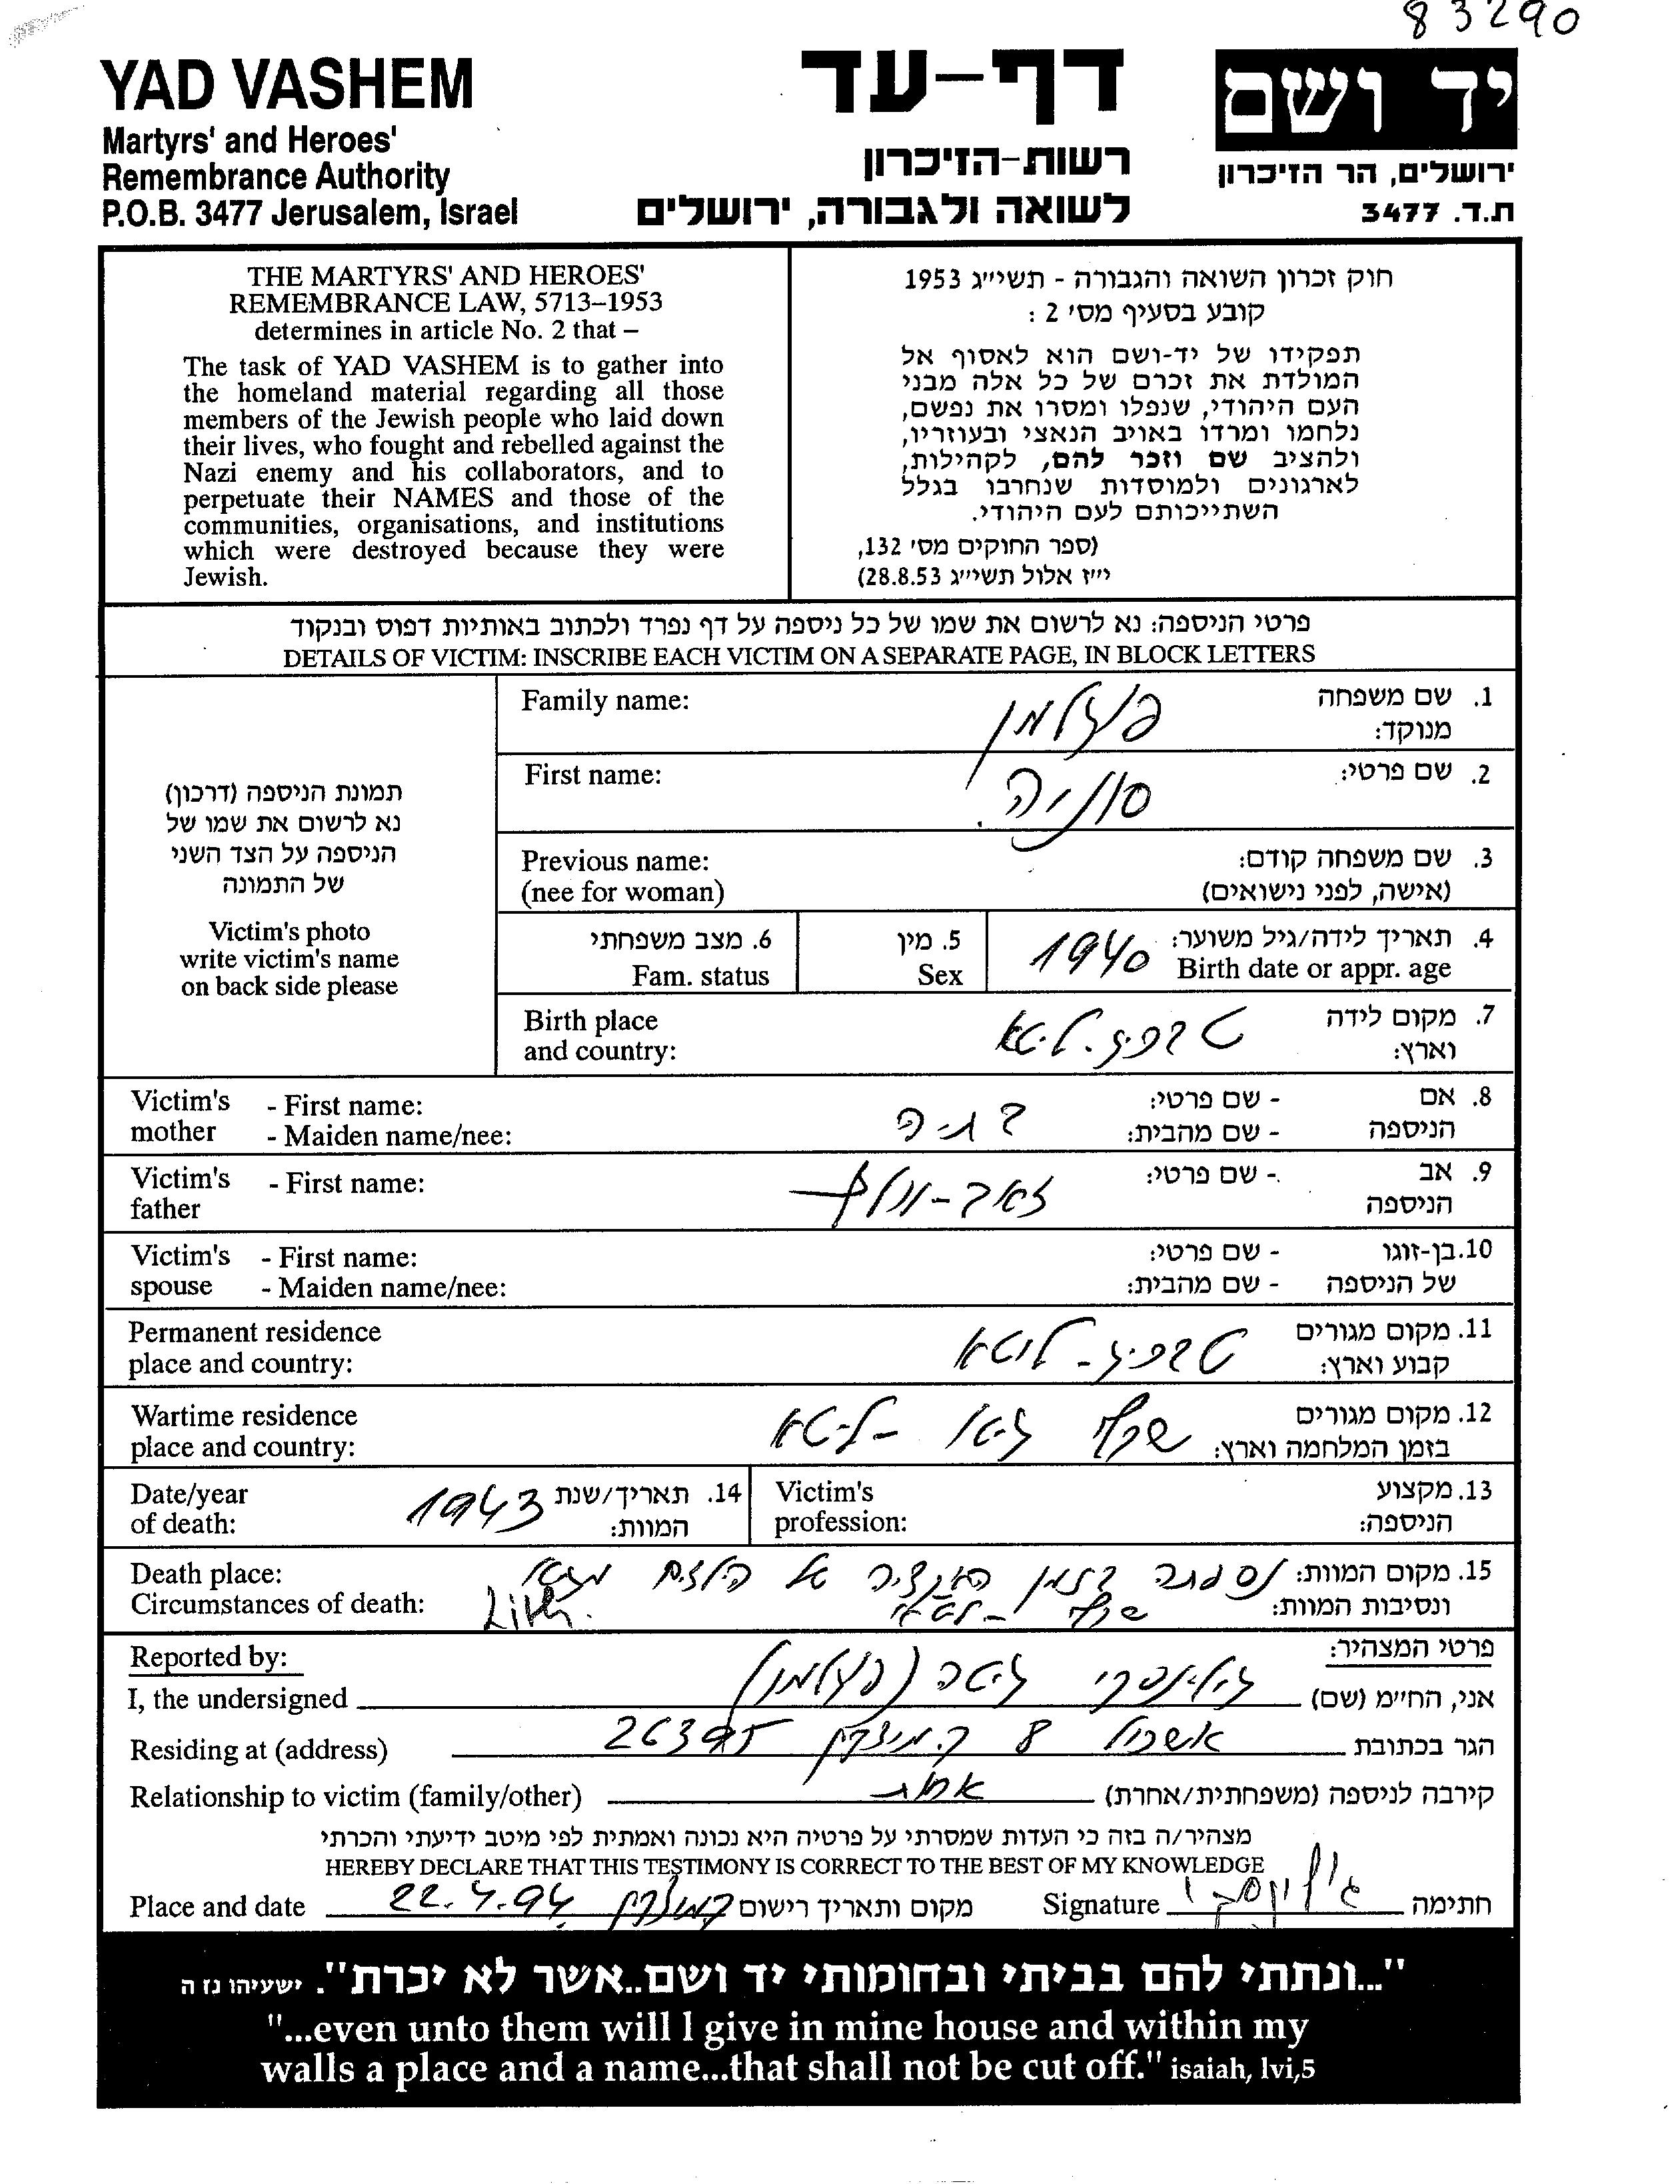 83290
YAD VASHEM
Martyrs' and Heroes'
Remembrance Authority
P.O.B. 3477 Jerusalem, Israel
דף-עד
רשות-הזיכרון
לשואה ולגבורה, ירושלים
יד ושם
ירושלים, הר הזיכרון
ת.ד. 3477
THE MARTYRS' AND HEROES'
REMEMBRANCE LAW, 5713–1953
determines in article No. 2 that –
The task of YAD VASHEM is to gather into
the homeland material regarding all those
members of the Jewish people who laid down
their lives, who fought and rebelled against the
Nazi enemy and his collaborators, and to
perpetuate their NAMES and those of the
communities, organisations, and institutions
which were destroyed because they were
Jewish.
חוק זכרון השואה והגבורה - תשי״ג 1953
קובע בסעיף מס׳ 2 :
תפקידו של יד-ושם הוא לאסוף אל
המולדת את זכרם של כל אלה מבני
העם היהודי, שנפלו ומסרו את נפשם,
נלחמו ומרדו באויב הנאצי ובעוזריו,
ולהציב שם וזכר להם, לקהילות,
לארגונים ולמוסדות שנחרבו בגלל
השתייכותם לעם היהודי.
(ספר החוקים מס׳ 132,
י״ז אלול תשי״ג 28.8.53)
פרטי הניספה: נא לרשום את שמו של כל ניספה על דף נפרד ולכתוב באותיות דפוס ובנקוד
DETAILS OF VICTIM: INSCRIBE EACH VICTIM ON A SEPARATE PAGE, IN BLOCK LETTERS
תמונת הניספה (דרכון)
נא לרשום את שמו של
הניספה על הצד השני
של התמונה
Victim's photo
write victim's name
on back side please
Family name: 1. שם משפחה
מנוקד:
First name: סוניה 2. שם פרטי:
Previous name: 3. שם משפחה קודם:
(nee for woman) (אישה, לפני נישואים)
6. מצב משפחתי 5. מין 1940 4. תאריך לידה/גיל משוער:
Fam. status Sex Birth date or appr. age
Birth place 7. מקום לידה
and country: ליטא וארץ:
Victim's - First name: - שם פרטי: 8. אם
mother - Maiden name/nee: - שם מהבית: הניספה
Victim's - First name: זאב-וולף - שם פרטי: 9. אב
father הניספה
Victim's - First name: - שם פרטי: 10.בן-זוגו
spouse - Maiden name/nee: - שם מהבית: של הניספה
Permanent residence 11. מקום מגורים
place and country: ליטא קבוע וארץ:
Wartime residence 12. מקום מגורים
place and country: ליטא בזמן המלחמה וארץ:
Date/year 1943 14. תאריך/שנת Victim's 13.מקצוע
of death: המוות: profession: הניספה:
Death place: נספתה בזמן האקציה של הילדים מגטו 15. מקום המוות:
Circumstances of death: ונסיבות המוות:
Reported by: פרטי המצהיר:
I, the undersigned אני, החיימ (שם)
Residing at (address) אשכול 8 ק. מוצקין 26395 הגר בכתובת
Relationship to victim (family/other) אחות קירבה לניספה (משפחתית/אחרת)
מצהיר/ה בזה כי העדות שמסרתי על פרטיה היא נכונה ואמתית לפי מיטב ידיעתי והכרתי
HEREBY DECLARE THAT THIS TESTIMONY IS CORRECT TO THE BEST OF MY KNOWLEDGE
Place and date 22.4.94 ק.מוצקין מקום ותאריך רישום Signature חתימה
"...ונתתי להם בביתי ובחומותי יד ושם..אשר לא יכרת". ישעיהו נז ה
"...even unto them will I give in mine house and within my
walls a place and a name...that shall not be cut off." isaiah, lvi,5